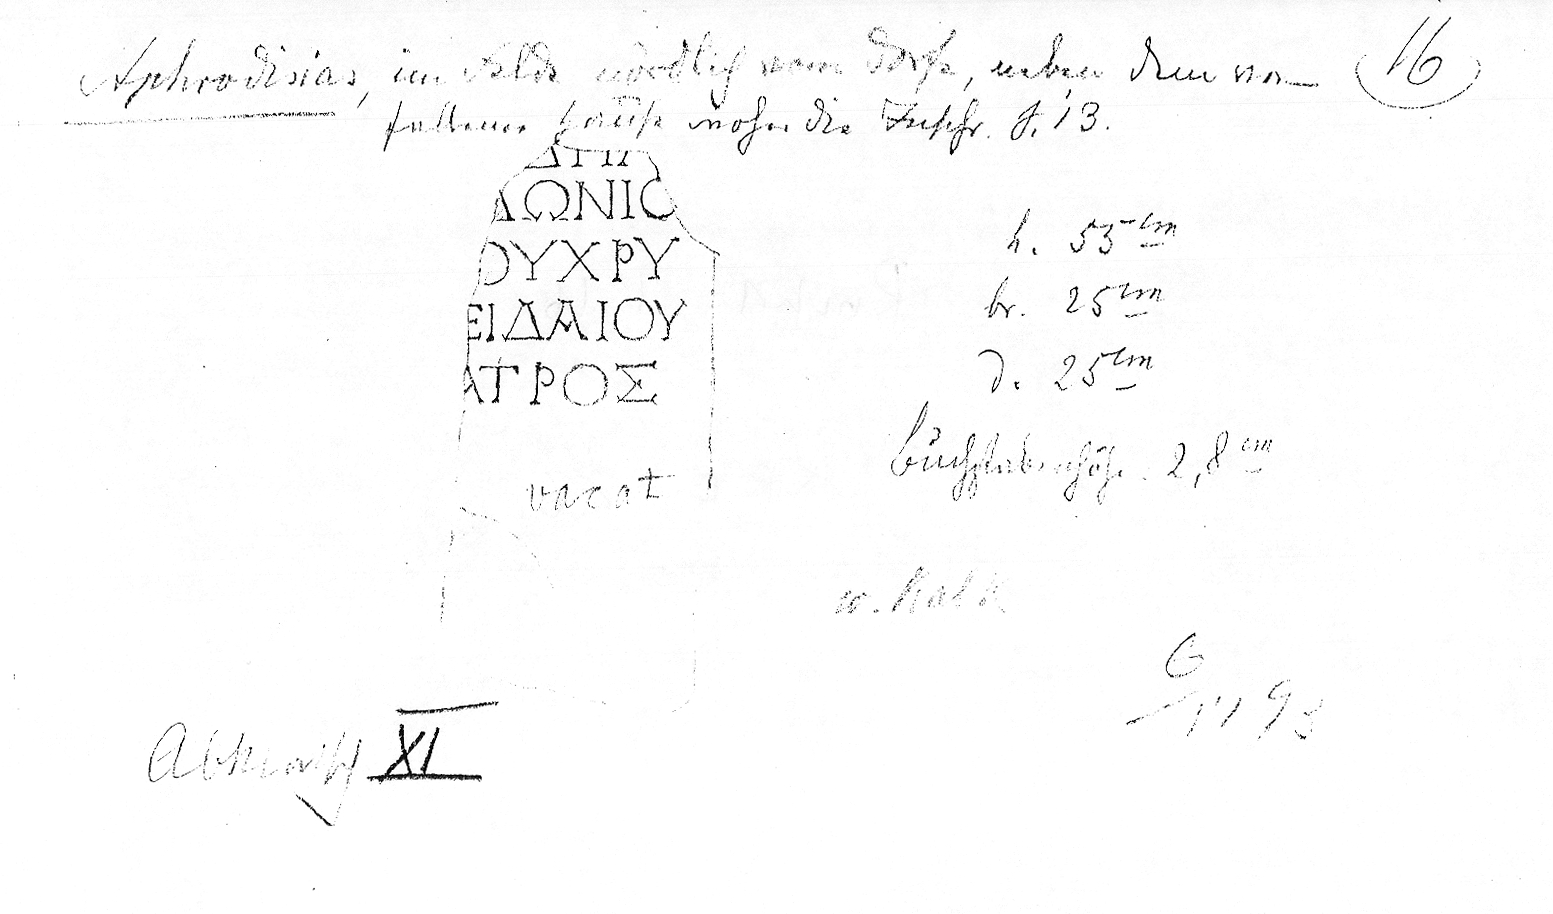 Aphrodisias, im Felde nördlich vom Dorfe, neben dem ver-
fallenen Hause woher die Inschr. S. 13.
16
ΛΩΝΙΟ
ΟΥΧΡΥ
ΕΙΔΑΙΟΥ
ΑΤΡΟΣ
vacat
h. 55 cm
br. 25 cm
d. 25 cm
Buchstabenhöhe. 2,8 cm
w. Kalk
Abklatsch XI